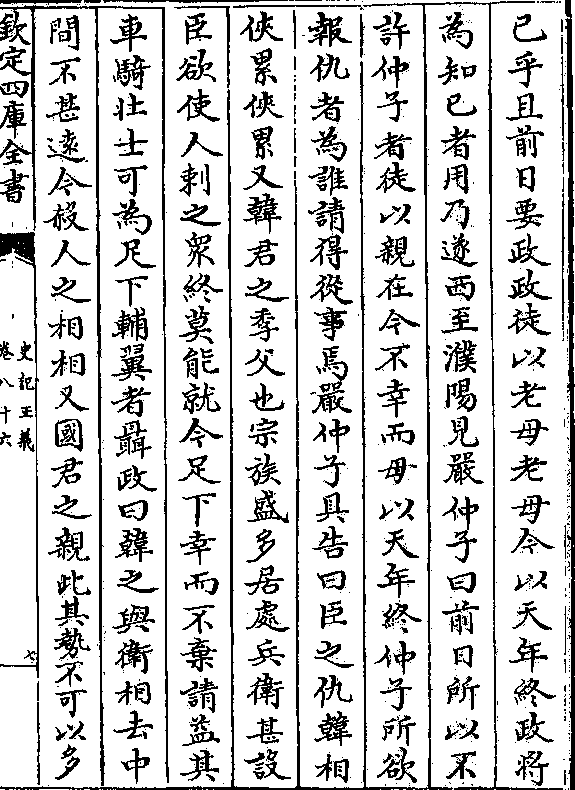 已乎且前日要政政徒以老母老母今以天年終政將
為知已者用乃遂西至濮陽見嚴仲子曰前日所以不
許仲子者徒以親在今不幸而母以天年終仲子所欲
報仇者為誰請得從事焉嚴仲子具告曰臣之仇韓相
俠累俠累又韓君之季父也宗族盛多居處兵衛甚設
臣欲使人刺之衆終莫能就今足下幸而不棄請益其
車騎壯士可為足下輔翼者聶政曰韓之與衛相去中
間不甚逺今殺人之相相又國君之親此其勢不可以多
欽定四庫全書
史記正義
卷八十六
七